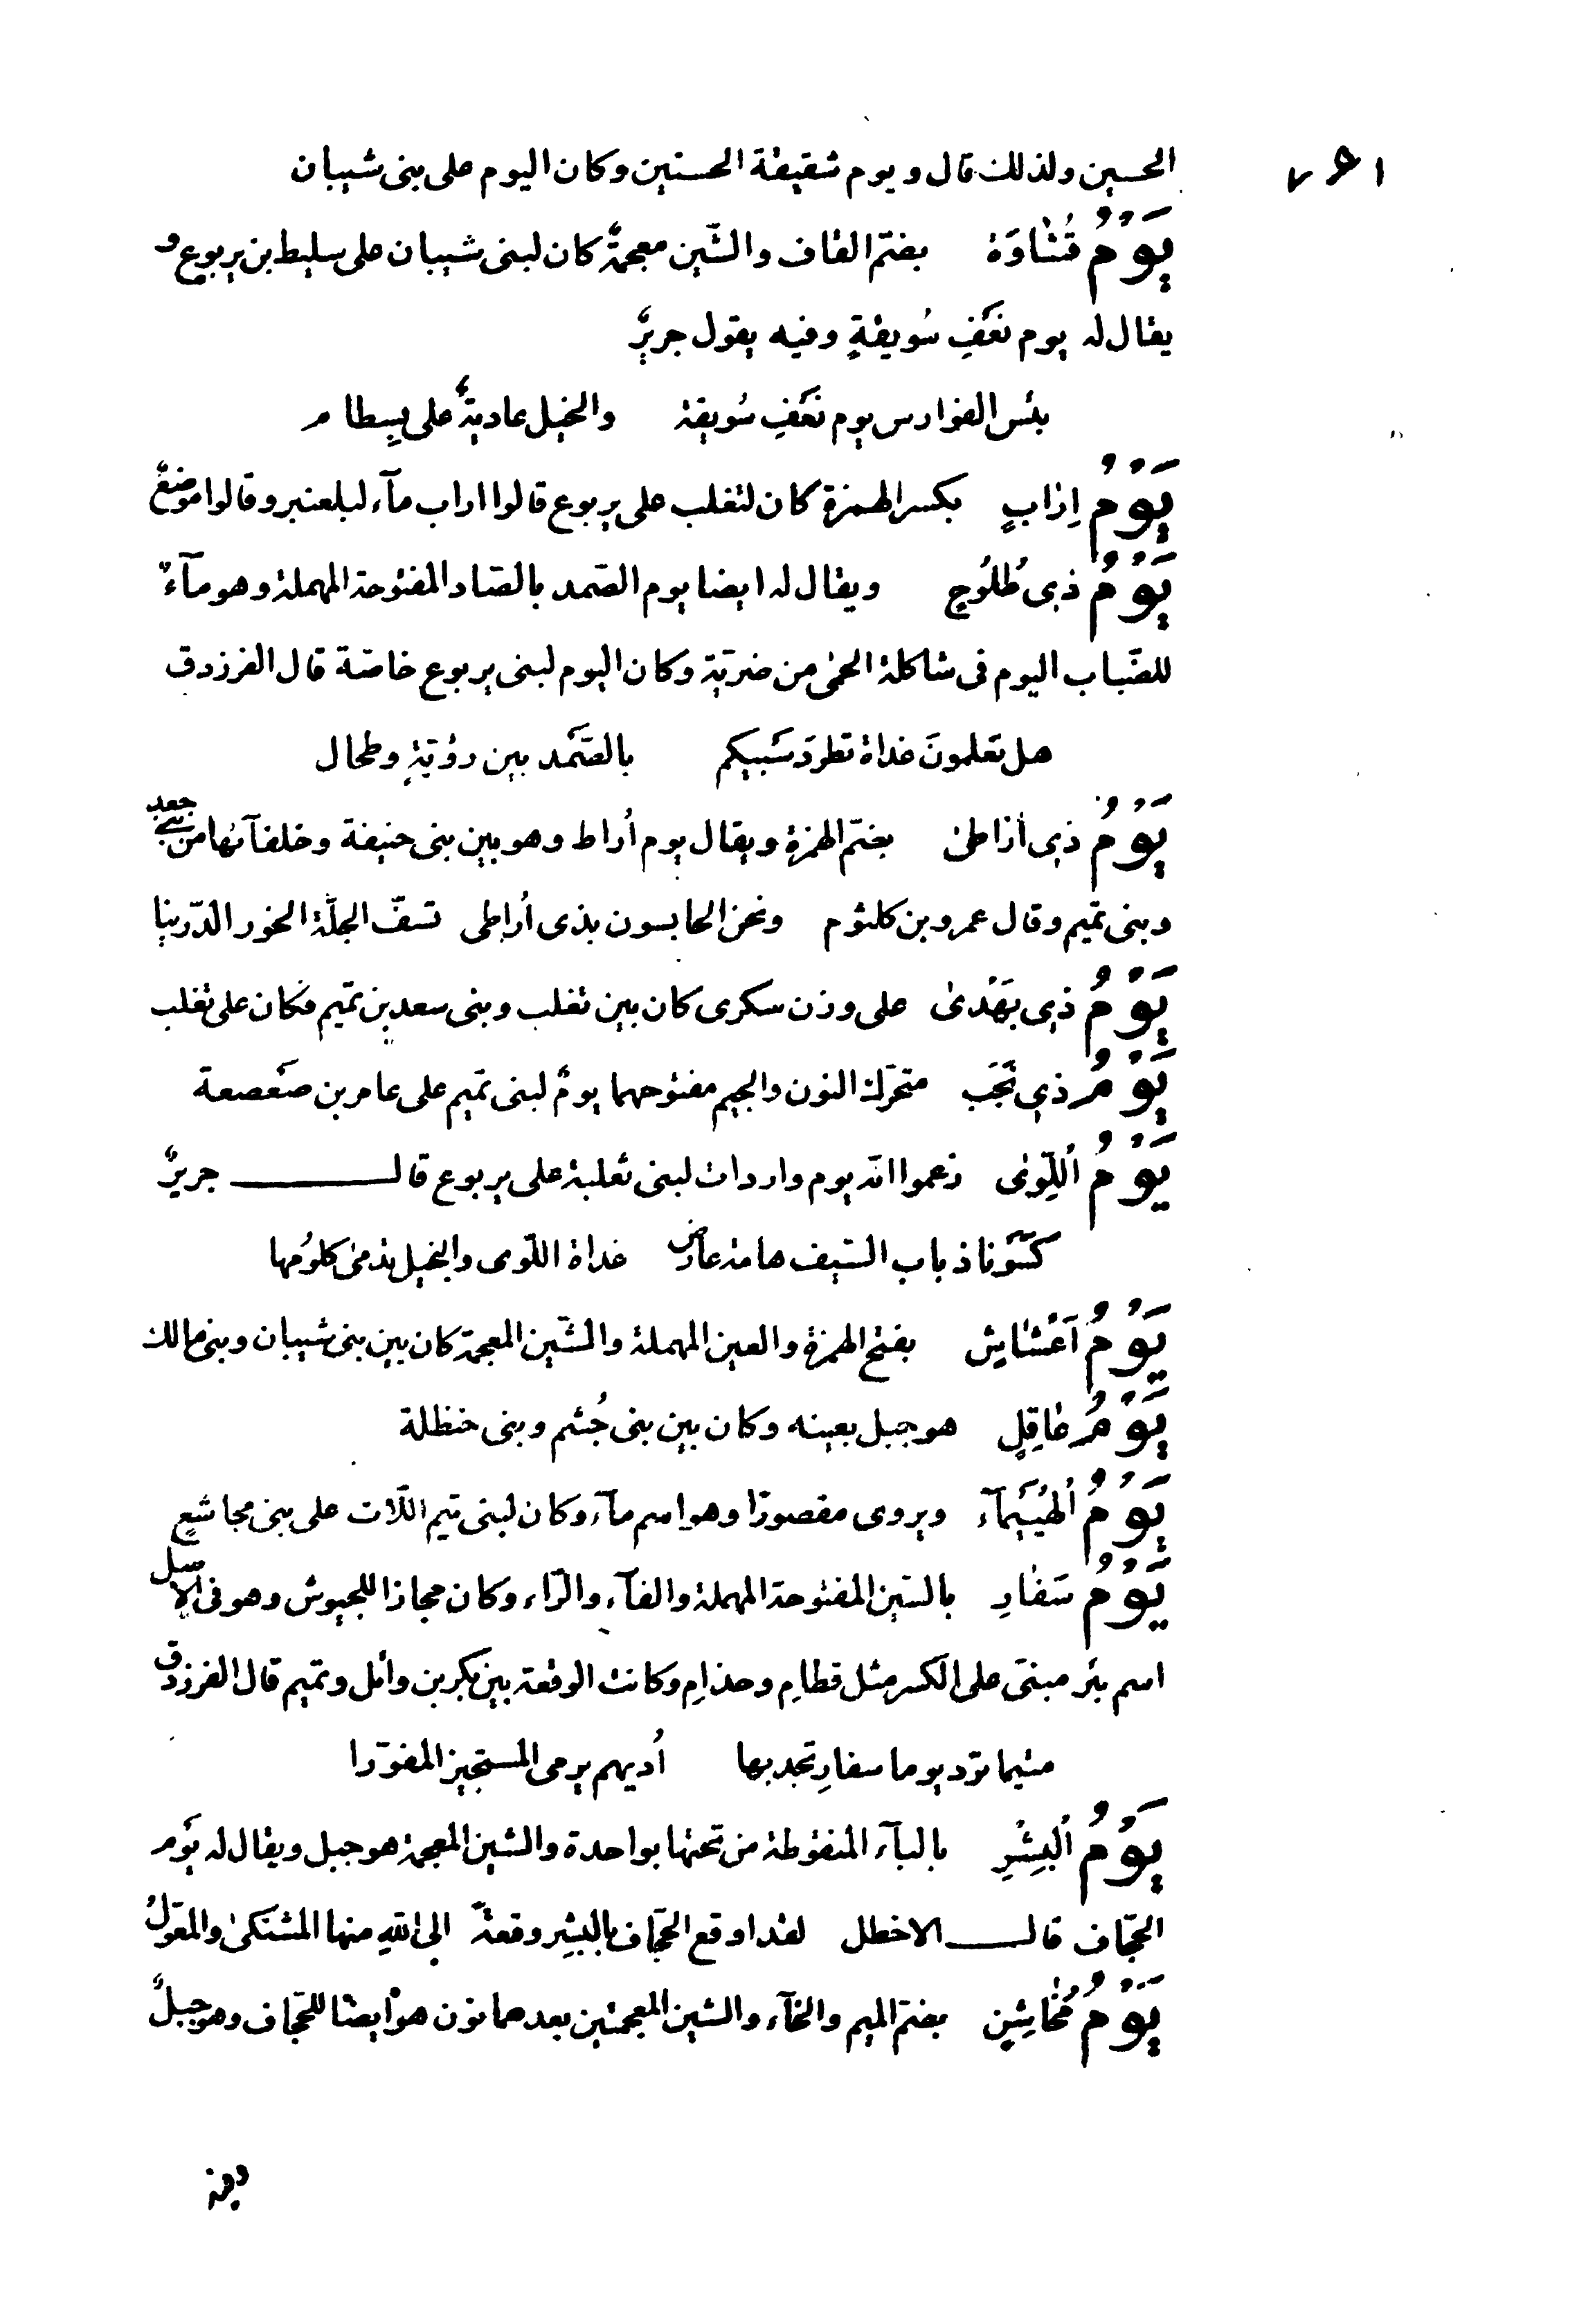 الحسين ولذلك قال ويوم شقيقة الحسنين وكان اليوم على بنى شيبان
يَوْمُ قُشَاوَة بضمّ القاف والشّين معجمةٌ كان لبنى شيبان على سليط بن يربوع و
يقال له يوم نَعْفِ سُويقةٍ وفيه يقول جريرٌ
بئس الفوارس يوم نَعْفِ سُويقة والخيل عاديةٌ على بِسِطام
يَوْمُ اِرَابٍ بكسر الهمزة كان لتغلب على يربوع قالوا اراب مآء لبلعنبر وقالوا موضعٌ
يَوْمُ ذى طُلُوحٍ ويقال له ايضا يوم الصّمد بالصّاد المفتوحة المهملة وهو مآءٌ
للضّباب اليوم فى شاكلة الحمى من ضريّة وكان اليوم لبنى يربوع خاصّة قال الفرزدق
هل تَعلمونَ غداة تطردَ سَبيكم بالصَّمْد بين رؤيّةٍ وطحال
يَوْمُ ذى أرَاطىٰ بضمّ الهمزة ويقال يوم أُراط وهو بين بنى حنيفة وخلفآئها من بنى جعد
وبنى تميم وقال عمرو بن كلثوم ونحن الحابسون بذى أُراطى تسفّ الجلّة الخور الدّرينا
يَوْمُ ذى بَهْدىٰ على وزن سكرى كان بين تغلب وبنى سعد بن تميم فكان على تغلب
يَوْمُ ذى نَجَب متحرّك النون والجيم مفتوحهما يومٌ لبنى تميم على عامر بن صَعْصعة
يَوْمُ اُللِّوىٰ زعموا انّه يوم واردات لبنى ثعلبة على يربوع قالـــ جريرٌ
كَسَوْنا ذباب السّيف هامة عارض غداة اللّوى والخيل تدمىٰ كلوُمها
يَوْمُ اَعْشَاشٍ بفتح الهمزة والعين المهملة والشّين المعجمة كان بين بنى شيبان وبنى مالك
يَوْمُ عَاقِلٍ هو جبل بعينه وكان بين بنى جُشم وبنى حنظلة
يَوْمُ اُلهُيَيْمآء ويروى مقصورًا وهو اسم مآء وكان لبنى تيم اللّات على بنى مجاشعٍ
يَوْمُ سَفَارِ بالسّين المفتوحة المهملة والفآء والرّاء وكان مجازا للجيوش وهو فى الاصل
اسم بئر مبنىّ على الكسر مثل قطامِ وحذامِ وكانت الوقعة بين بكر بن وائل وتميم قال الفرزدق
متيما ترد يوما سفارِ تجد بها أُديهم يرمى المستجيز المغوّرا
يَوْمُ اُلْبِشْرِ بالبآء المنقوطة من تحتها بواحدة والشين المعجمة هو جبل ويقال له يَوم
الجحّاف قالـــ الاخطل لقد اوقع الجحّاف بالبِشِر وقعةً الى اللّهِ منها المشتكىٰ والمعوّلُ
يَوْمُ مُخَاشِنٍ بضمّ الميم والخآء والشين المعجمتين بعدهما نون هو ايضًا للجحّاف وهو جبلٌ